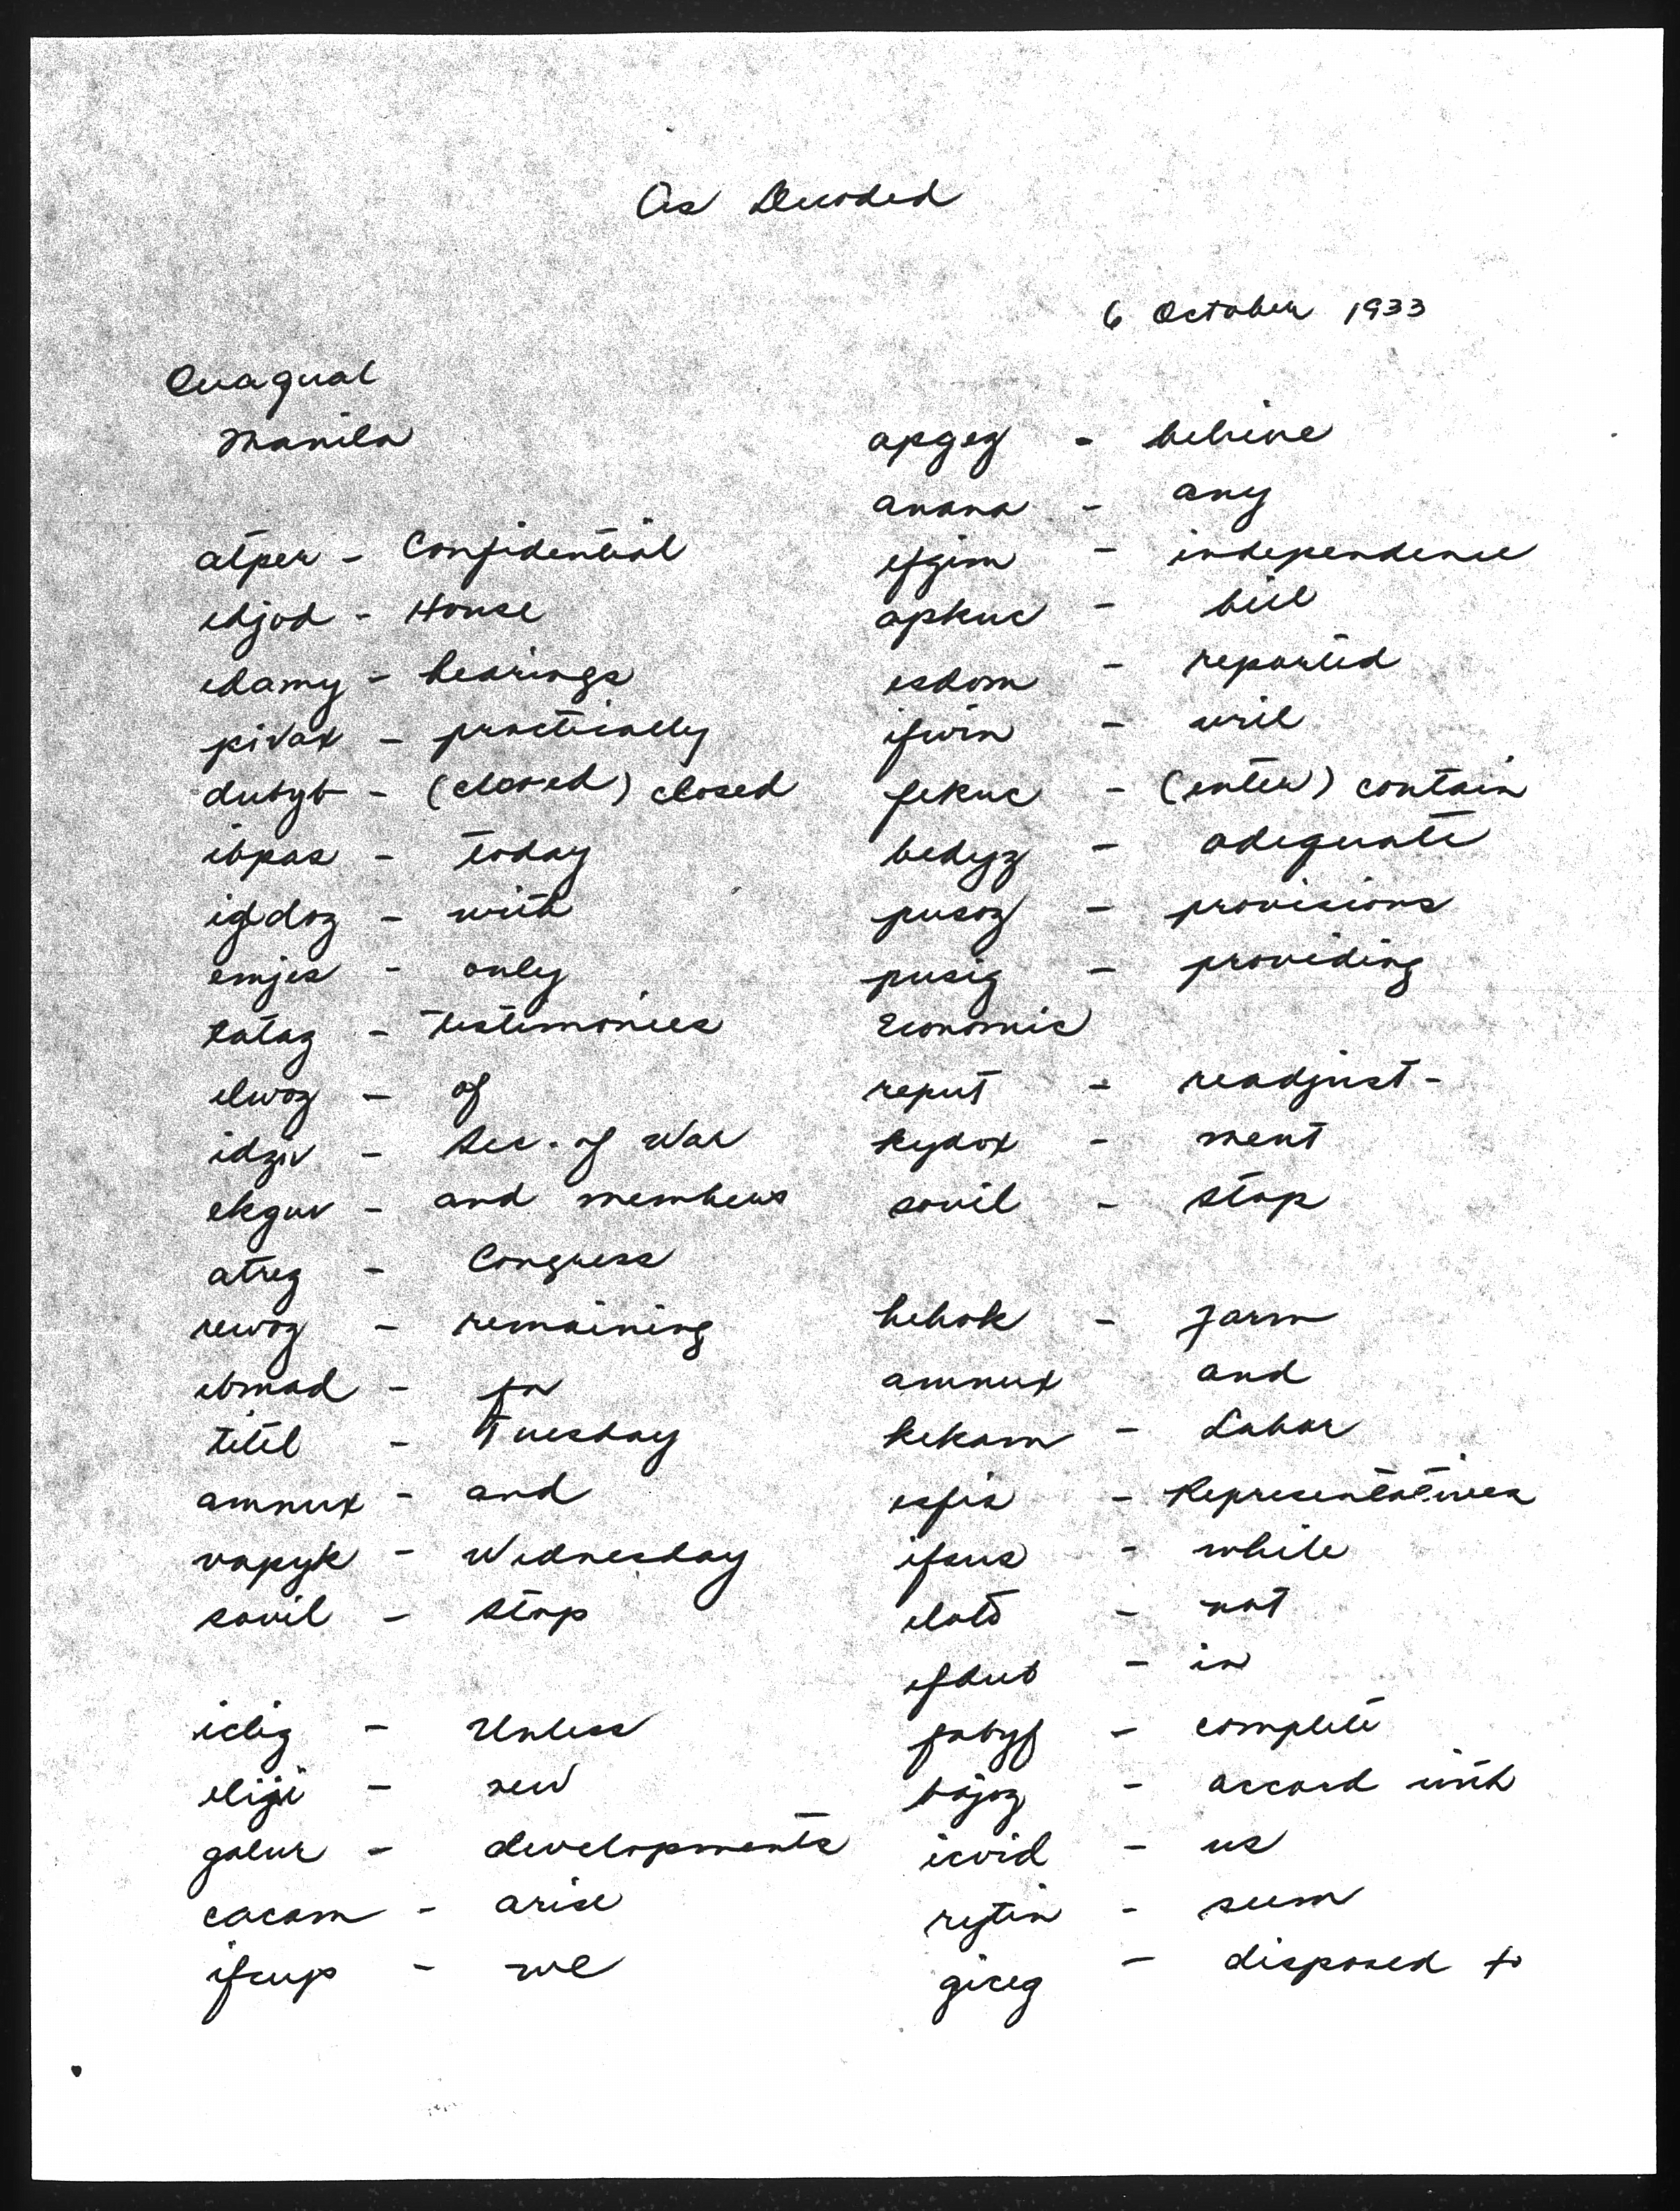 As Decoded
6 October 1933
Quagual
Manila
atper - Confidential
ehjod - House
ehamy - hearings
pivax - practically
dubyb - (closed) closed
ibpas - today
igdoz - with
emjes - only
tataz - testimonies
elwoz - of
idziv - Sec. of War
ekguv - and members
atreg - Congress
rewoz - remaining
ebmad - for
titil - Tuesday
amnux - and
vapyk - Wednesday
sovil - stop
iclig - Unless
eliji - new
galur - developments
cacam - arise
ifcup - we
apgez - believe
anana - any
efgim - independence
apkuc - bill
esdom - reported
ifwin - will
fekuc - (enter) contain
bedyz - adequate
pusoz - provisions
pusig - providing
Economic
reput - readjust-
kydox - ment
sovil - stop
hehok - Farm
amnux and
kekam - Labor
esfis - Representatives
ifsus - while
elato - not
efdub - in
fabyf - complete
bajoz - accord with
icvid - us
rytin - seem
giceg - disposed to